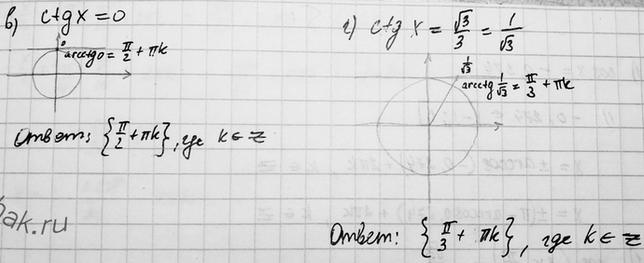 в) ctg x = 0
0
arcctg 0 = π/2 + πk
Ответ: {π/2 + πk}, где k ∈ Z
ak.ru
г) ctg x = √3/3 = 1/√3
1/√3
arcctg 1/√3 = π/3 + πk
Ответ: {π/3 + πk}, где k ∈ Z